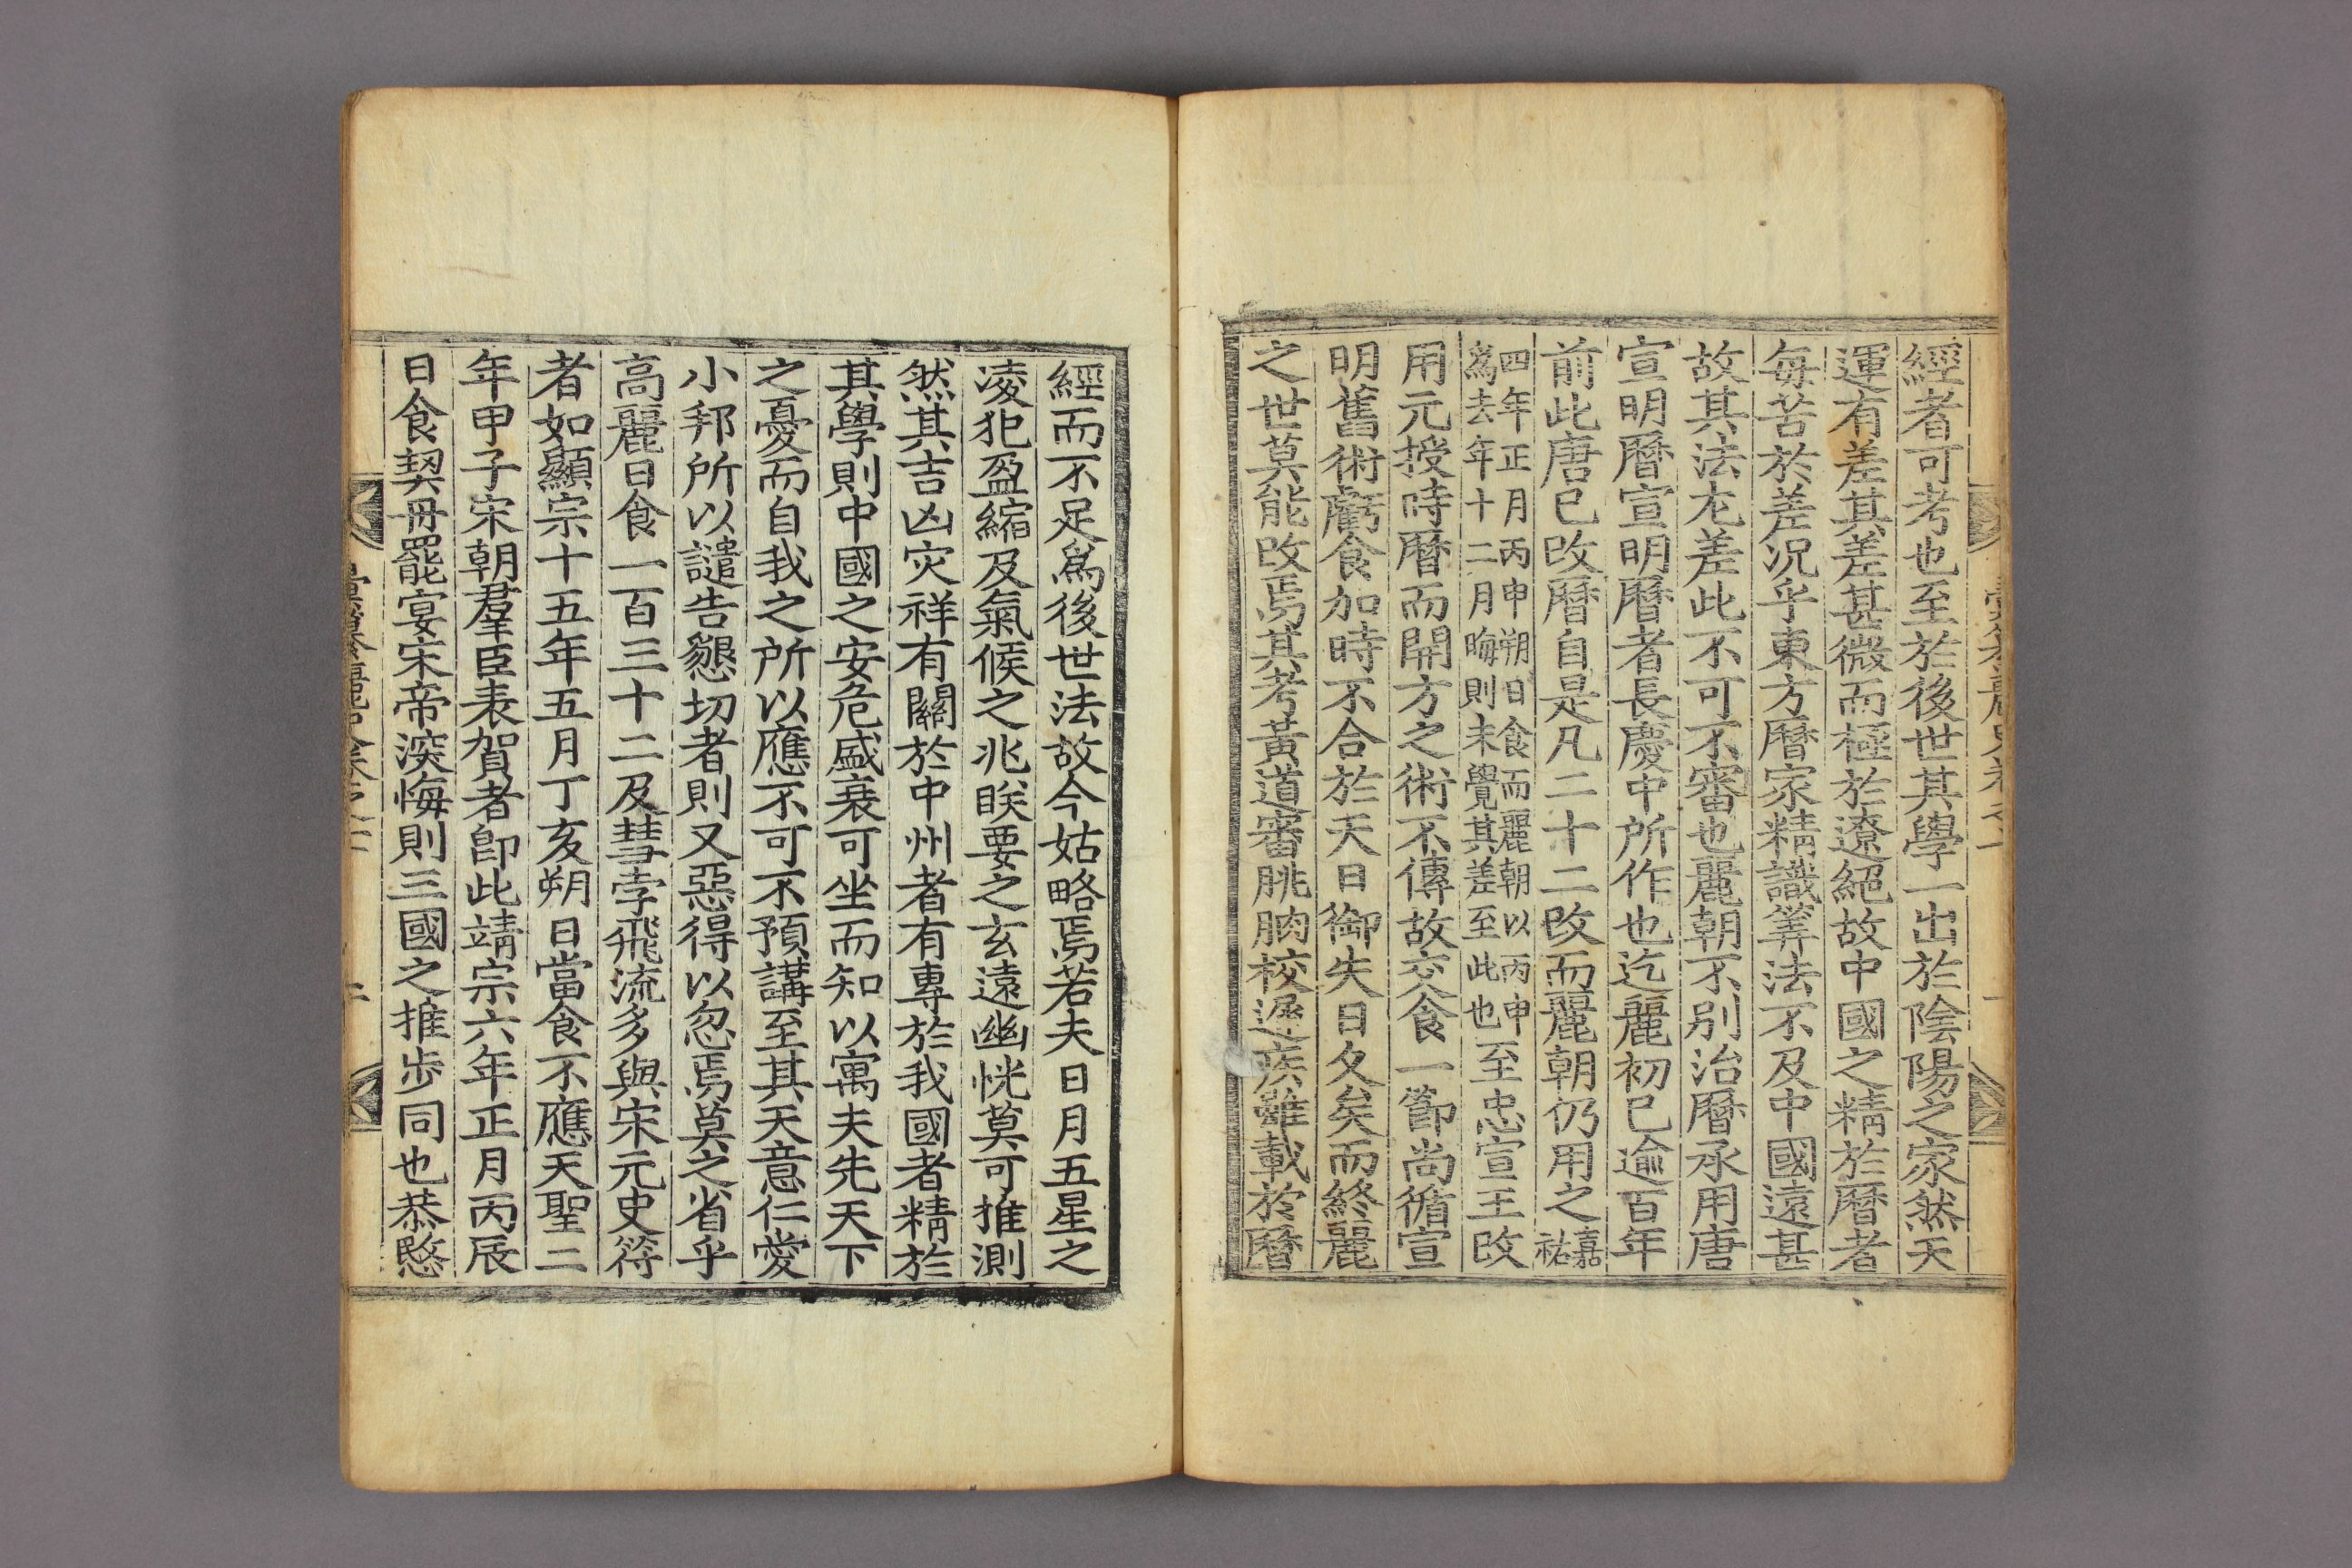 經者可考也至於後世其學一出於陰陽之家然天
運有差其差甚微而極於遼絕故中國之精於曆者
每苦於差况乎東方曆家精識筭法不及中國遠甚
故其法尤差此不可不審也麗朝不別治曆承用唐
宣明曆宣明曆者長慶中所作也迄麗初已逾百年
前此唐已改曆自是凡二十二改而麗朝仍用之嘉祐
四年正月丙申朔日食而麗朝以丙申
爲去年十二月晦則未覺其差至此也至忠宣王改
用元授時曆而開方之術不傳故交食一節尚循宣
明舊術虧食加時不合於天日御失日久矣而終麗
之世莫能改焉其考黃道審朓朒校遲疾雖載於曆
經而不足爲後世法故今姑略焉若夫日月五星之
凌犯盈縮及氣候之兆眹要之玄遠幽恍莫可推測
然其吉凶灾祥有關於中州者有專於我國者精於
其學則中國之安危盛衰可坐而知以寓夫先天下
之憂而自我之所以應不可不預講至其天意仁愛
小邦所以譴告懇切者則又惡得以忽焉莫之省乎
高麗日食一百三十二及彗孛飛流多與宋元史符
者如顯宗十五年五月丁亥朔日當食不應天聖二
年甲子宋朝羣臣表賀者卽此靖宗六年正月丙辰
日食契丹罷宴宋帝深悔則三國之推步同也恭愍
二